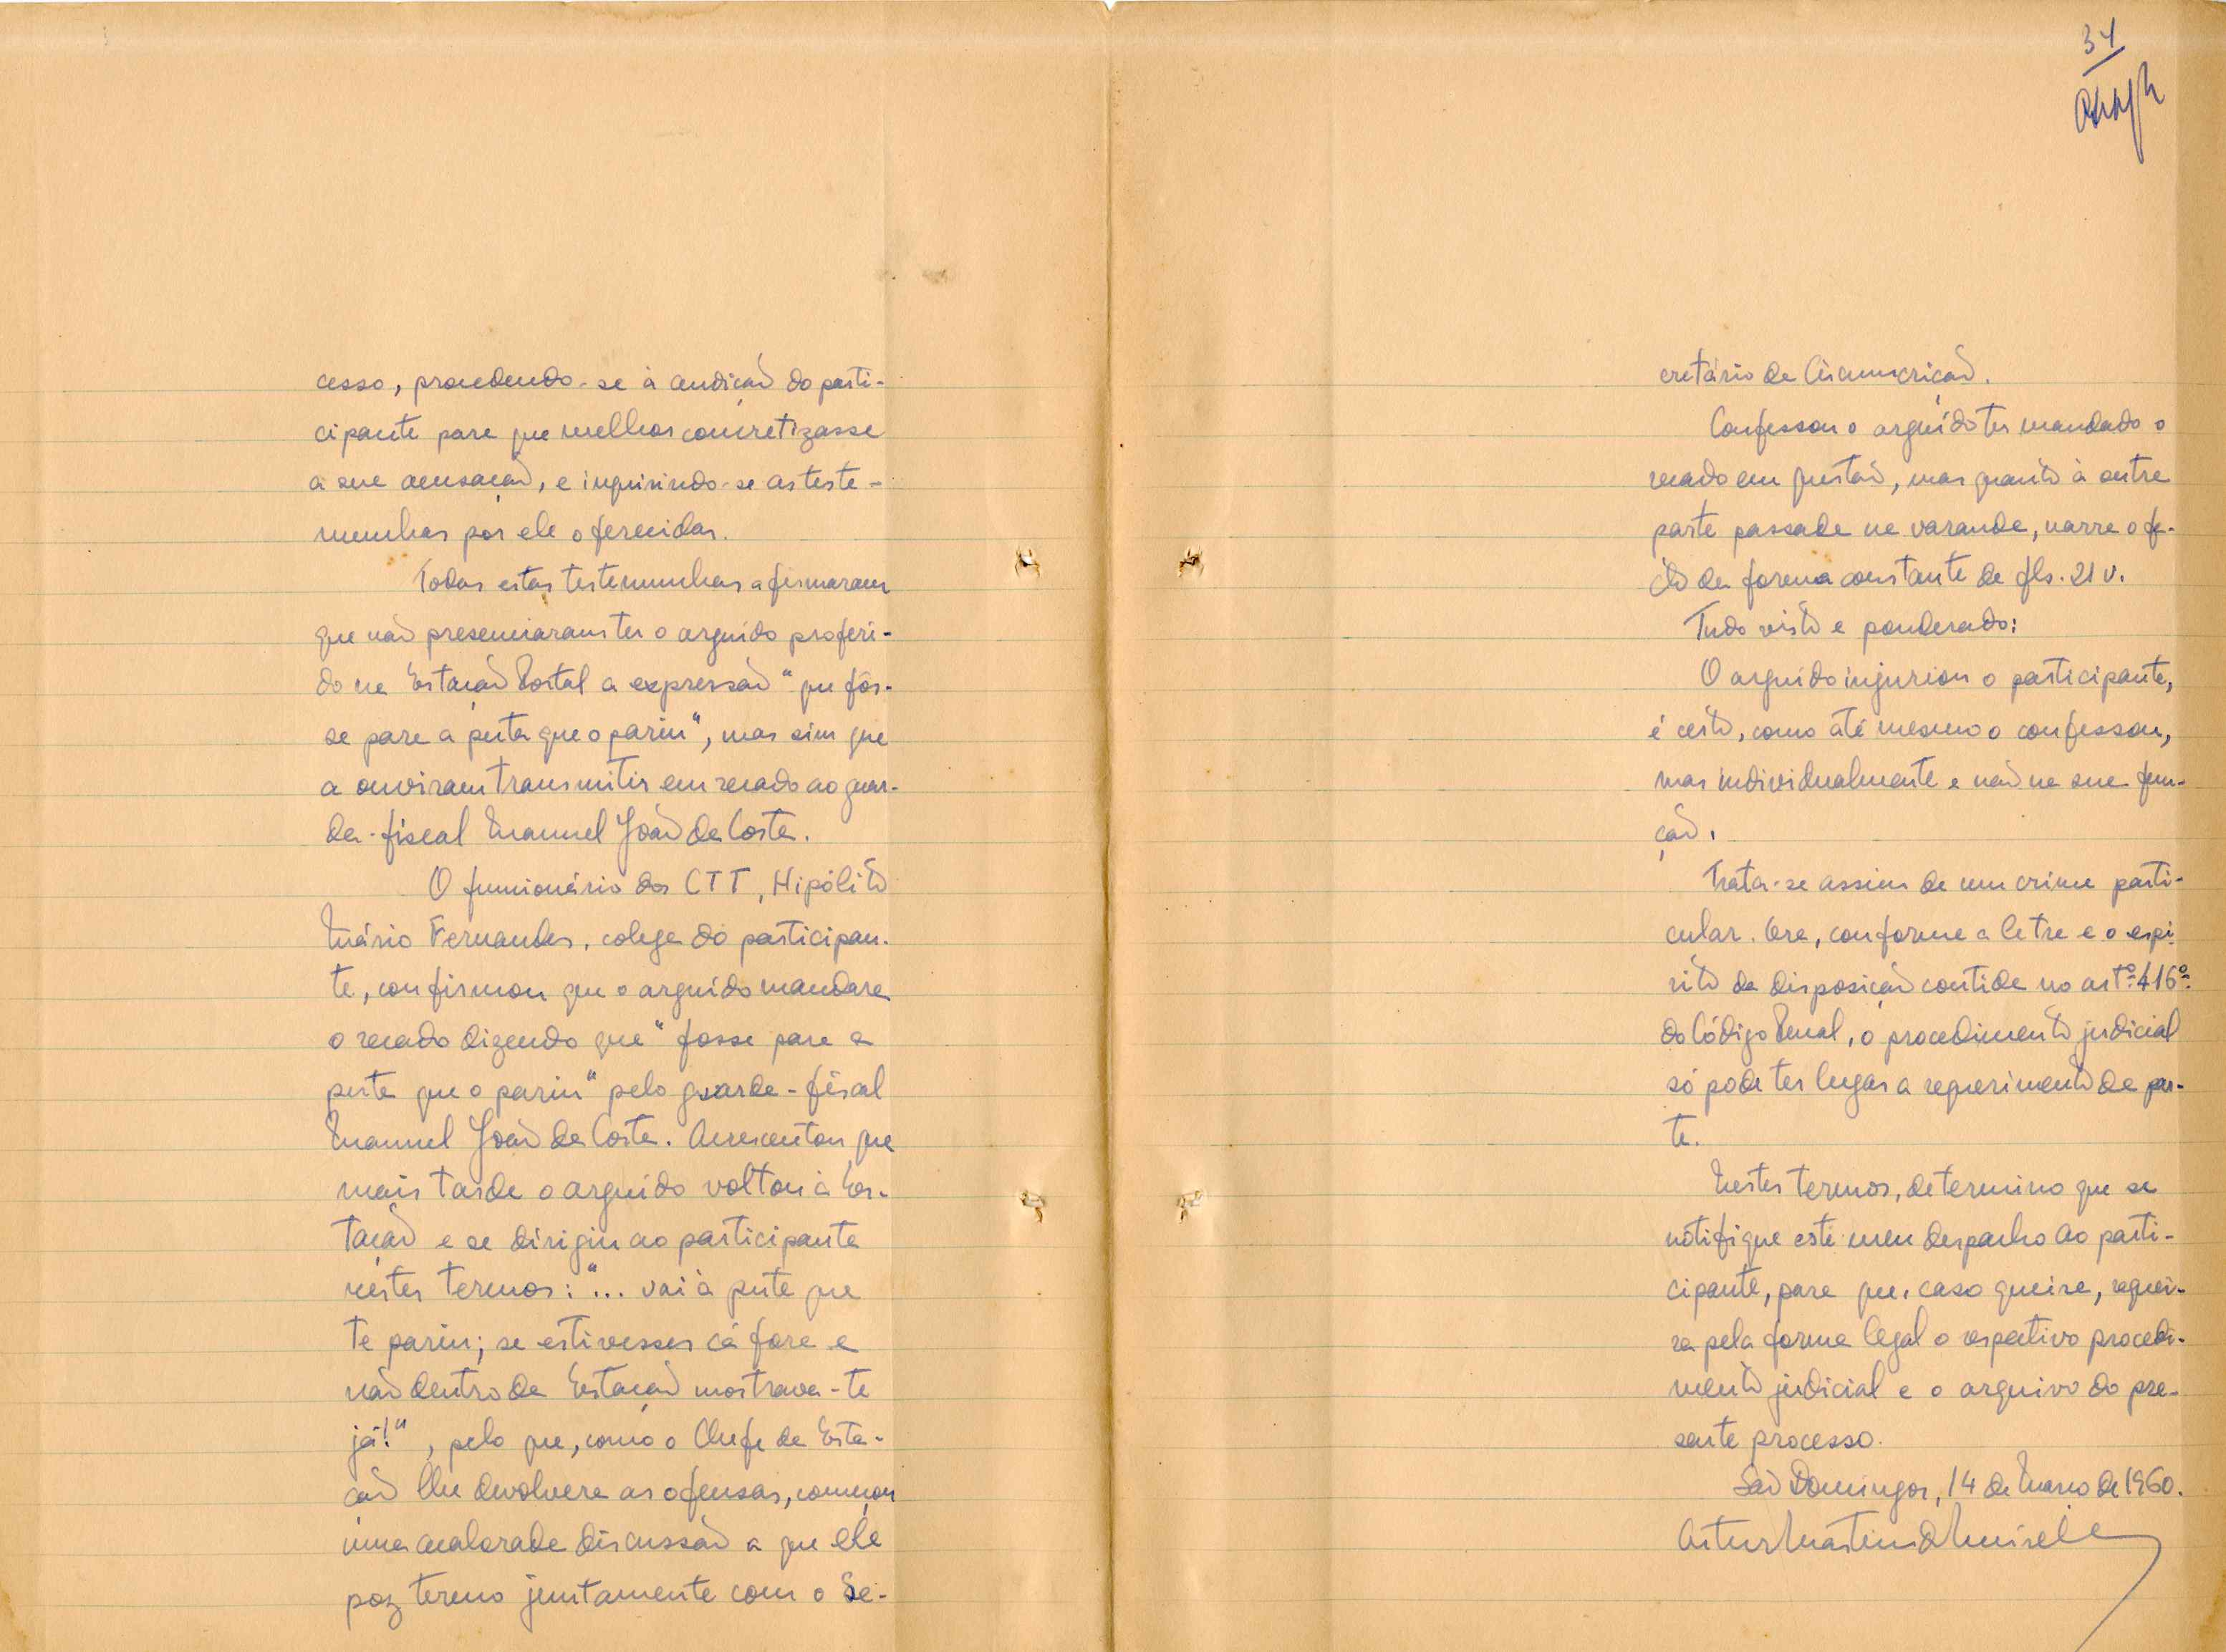 cesso, procedendo-se à audição do parti-
cipante para que melhor concretizasse
a sua acusação, e inquirindo-se as teste-
munhas por ele oferecidas.
Todas estas testemunhas afirmaram
que não presenciaram ter o arguido proferi-
do na Estação Postal a expressão "que fôs-
se para a puta que o pariu", mas sim que
a ouviram transmitir em recado ao guar-
da-fiscal Manuel João da Costa.
O funcionário dos CTT, Hipólito
Mário Fernandes, colega do participan-
te, confirmou que o arguido mandara
o recado dizendo que "fosse para a
puta que o pariu" pelo guarda-fiscal
Manuel João da Costa. Acrescentou que
mais tarde o arguido voltou à Es-
tação e se dirigiu ao participante
nestes termos: "... vai à puta que
te pariu; se estivesses cá fora e
não dentro da Estação mostrava-te
já!", pelo que, como o Chefe da Esta-
ção lhe devolvera as ofensas, começou
uma acalorada discussão a que ele
poz termo juntamente com o Se-
34
cretário de Circunscrição.
Confessou o arguido ter mandado o
recado em questão, mas quanto à outra
parte passada na varanda, narra o fa-
cto da forma constante de fls. 21 v.
Tudo visto e ponderado:
O arguido injuriou o participante,
é certo, como até mesmo o confessou,
mas individualmente e não na sua fun-
ção.
Trata-se assim de um crime parti-
cular. Ora, conforme a letra e o espi-
rito da disposição contida no artº 416º
do Código Penal, o procedimento judicial
só pode ter lugar a requerimento de par-
te.
Nestes termos, determino que se
notifique este meu despacho ao parti-
cipante, para que, caso queira, requei-
ra pela forma legal o respectivo procedi-
mento judicial e o arquivo do pre-
sente processo.
São Domingos, 14 de Março de 1960.
Artur Martins